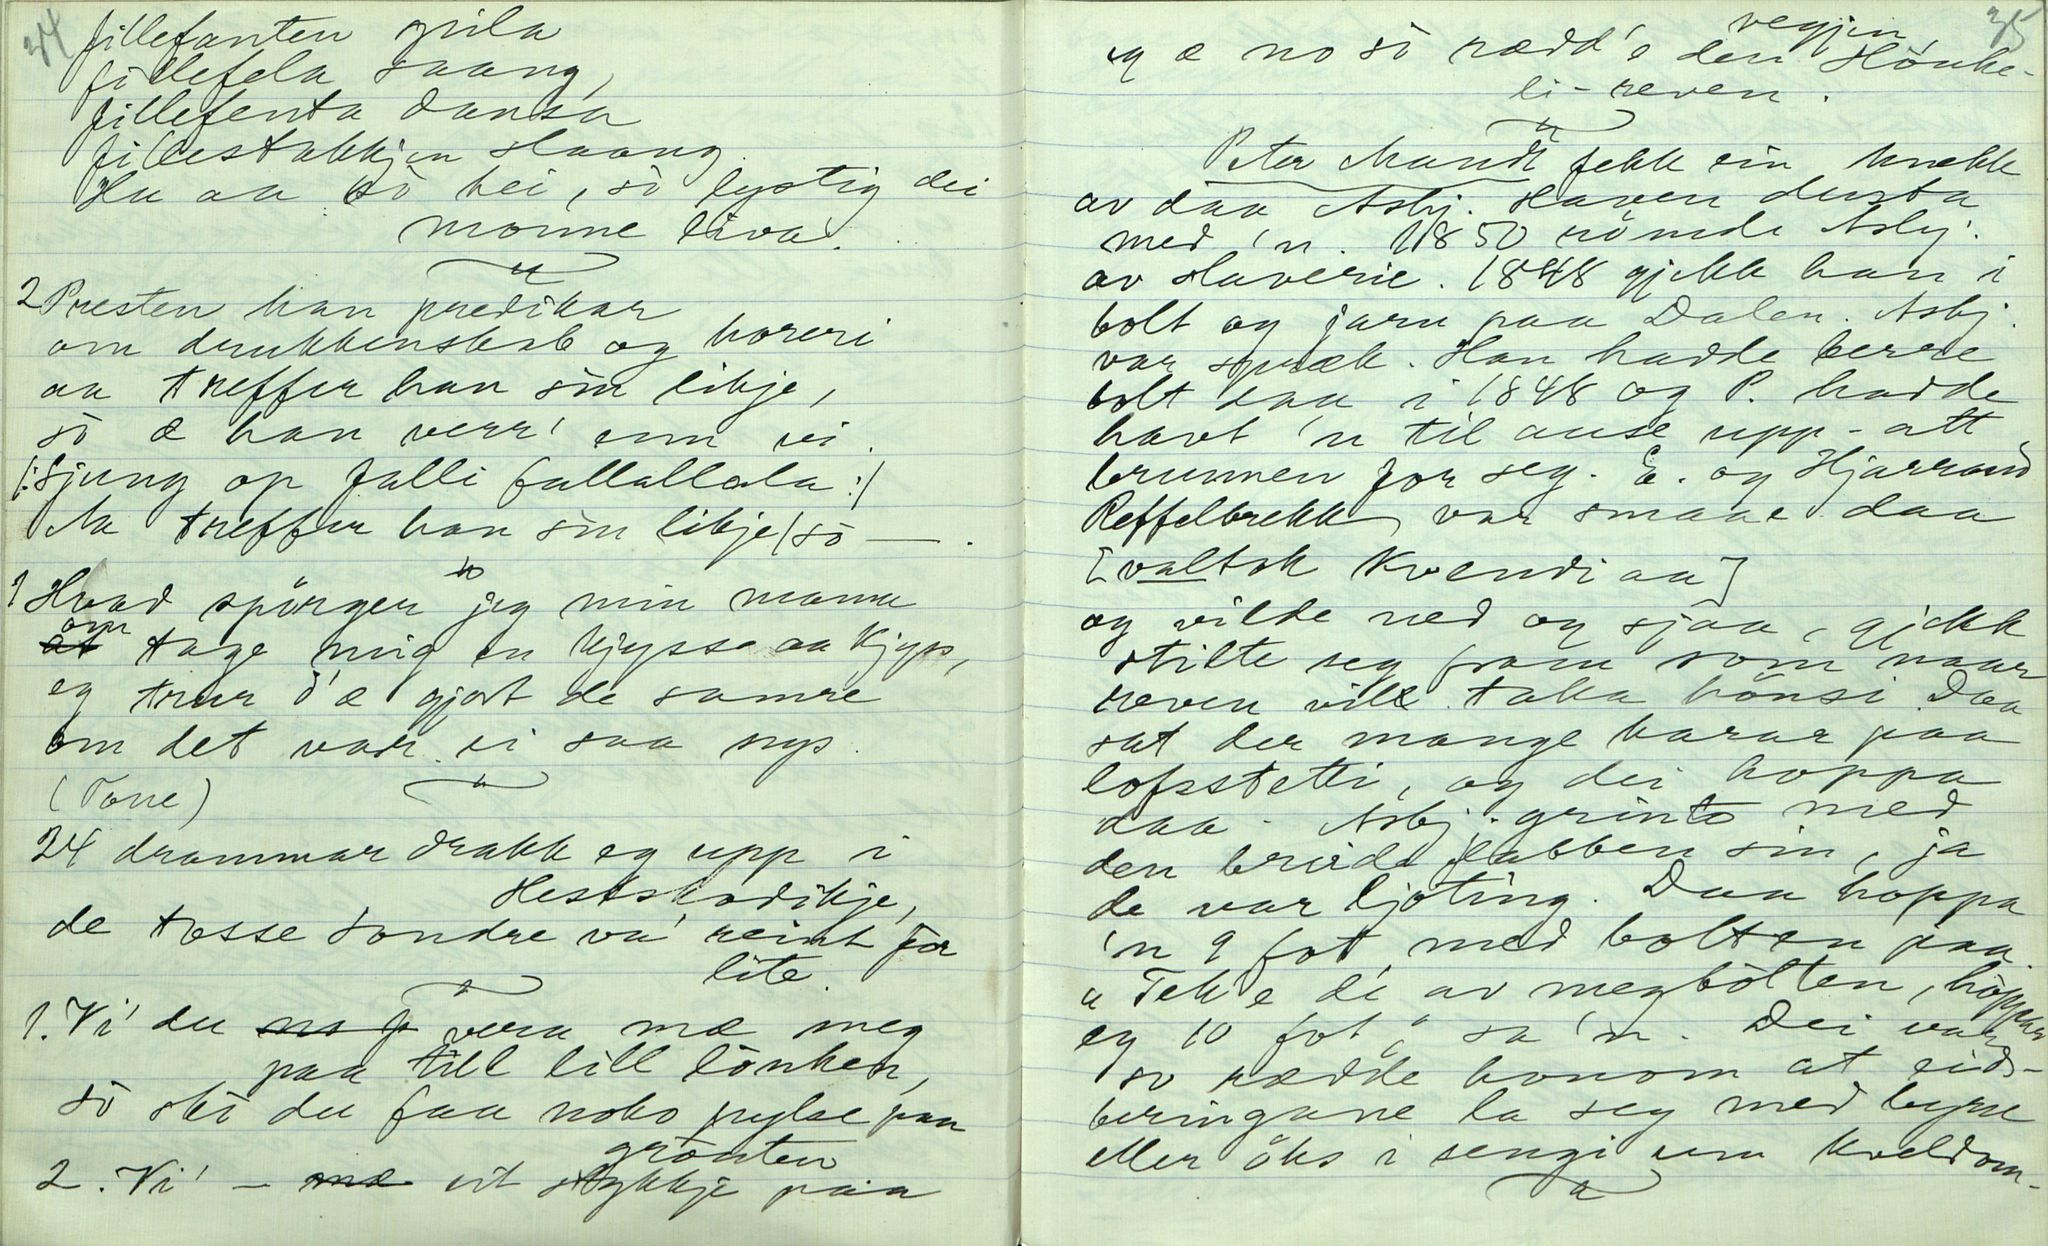 34
fillefanten spila
fillefela saang,
fillefenta dansa
fillestakkjen slaang.
Hu aa hò hei, sò lystig dei
monne liva.
2 Presten han predikar
om drukkenskab og horeri
aa treffer han sin likje,
sò æ han verr' enn vi.
/: Sjung op falli fallallala :/
Aa treffer han sin likje / sò —.
1 Hvad spörger jeg min mamma
om tage mig en kjysse aa kjyss,
eg trur d'æ gjort de samre
om det var ei saa nys.
(Tone)
24 drammar drakk eg upp i
Hestskodikje,
de tosse Sondre va' reint for
lite.
1. Vi' du vera mæ meg
paa till lill lönken,
sò ski du faa noko pylse paa
grönten
2. Vi' – eit stykkje paa
35
vegjen
eg æ no sò rædd'e den Hönke-
li-reven.
Peter Mandt fekk ein knekk
av daa Asbj. Slaven dusta
med 'n. 1850 römde Asbj.
av slaverie. 1848 gjekk han i
bolt og jarn paa Dalen. Asbj.
var spræk. Han hadde berre
bolt daa i 1848 og P. hadde
havt 'n til ause upp-att
brunnen for seg. E. og Hjarrand
Reffelbrekk var smaae daa
[valtok Kvendi aa]
og vilde ned og sjaa, gjekk
stilte seg fram som naar
reven vill taka hönsi. Daa
sat der mange karar paa
lofsstetti, og dei hoppa
daa. Asbj. grinte med
den breide flabben sin, ja
de var ljoting. Daa hoppa
'n 9 fot med bolten paa.
"Tek e di av meg bolten, hoppar
eg 10 fot" sa 'n. Dei var
so rædde honom at eids-
beringane la seg med byrse
eller öks i sengi um kveldom-